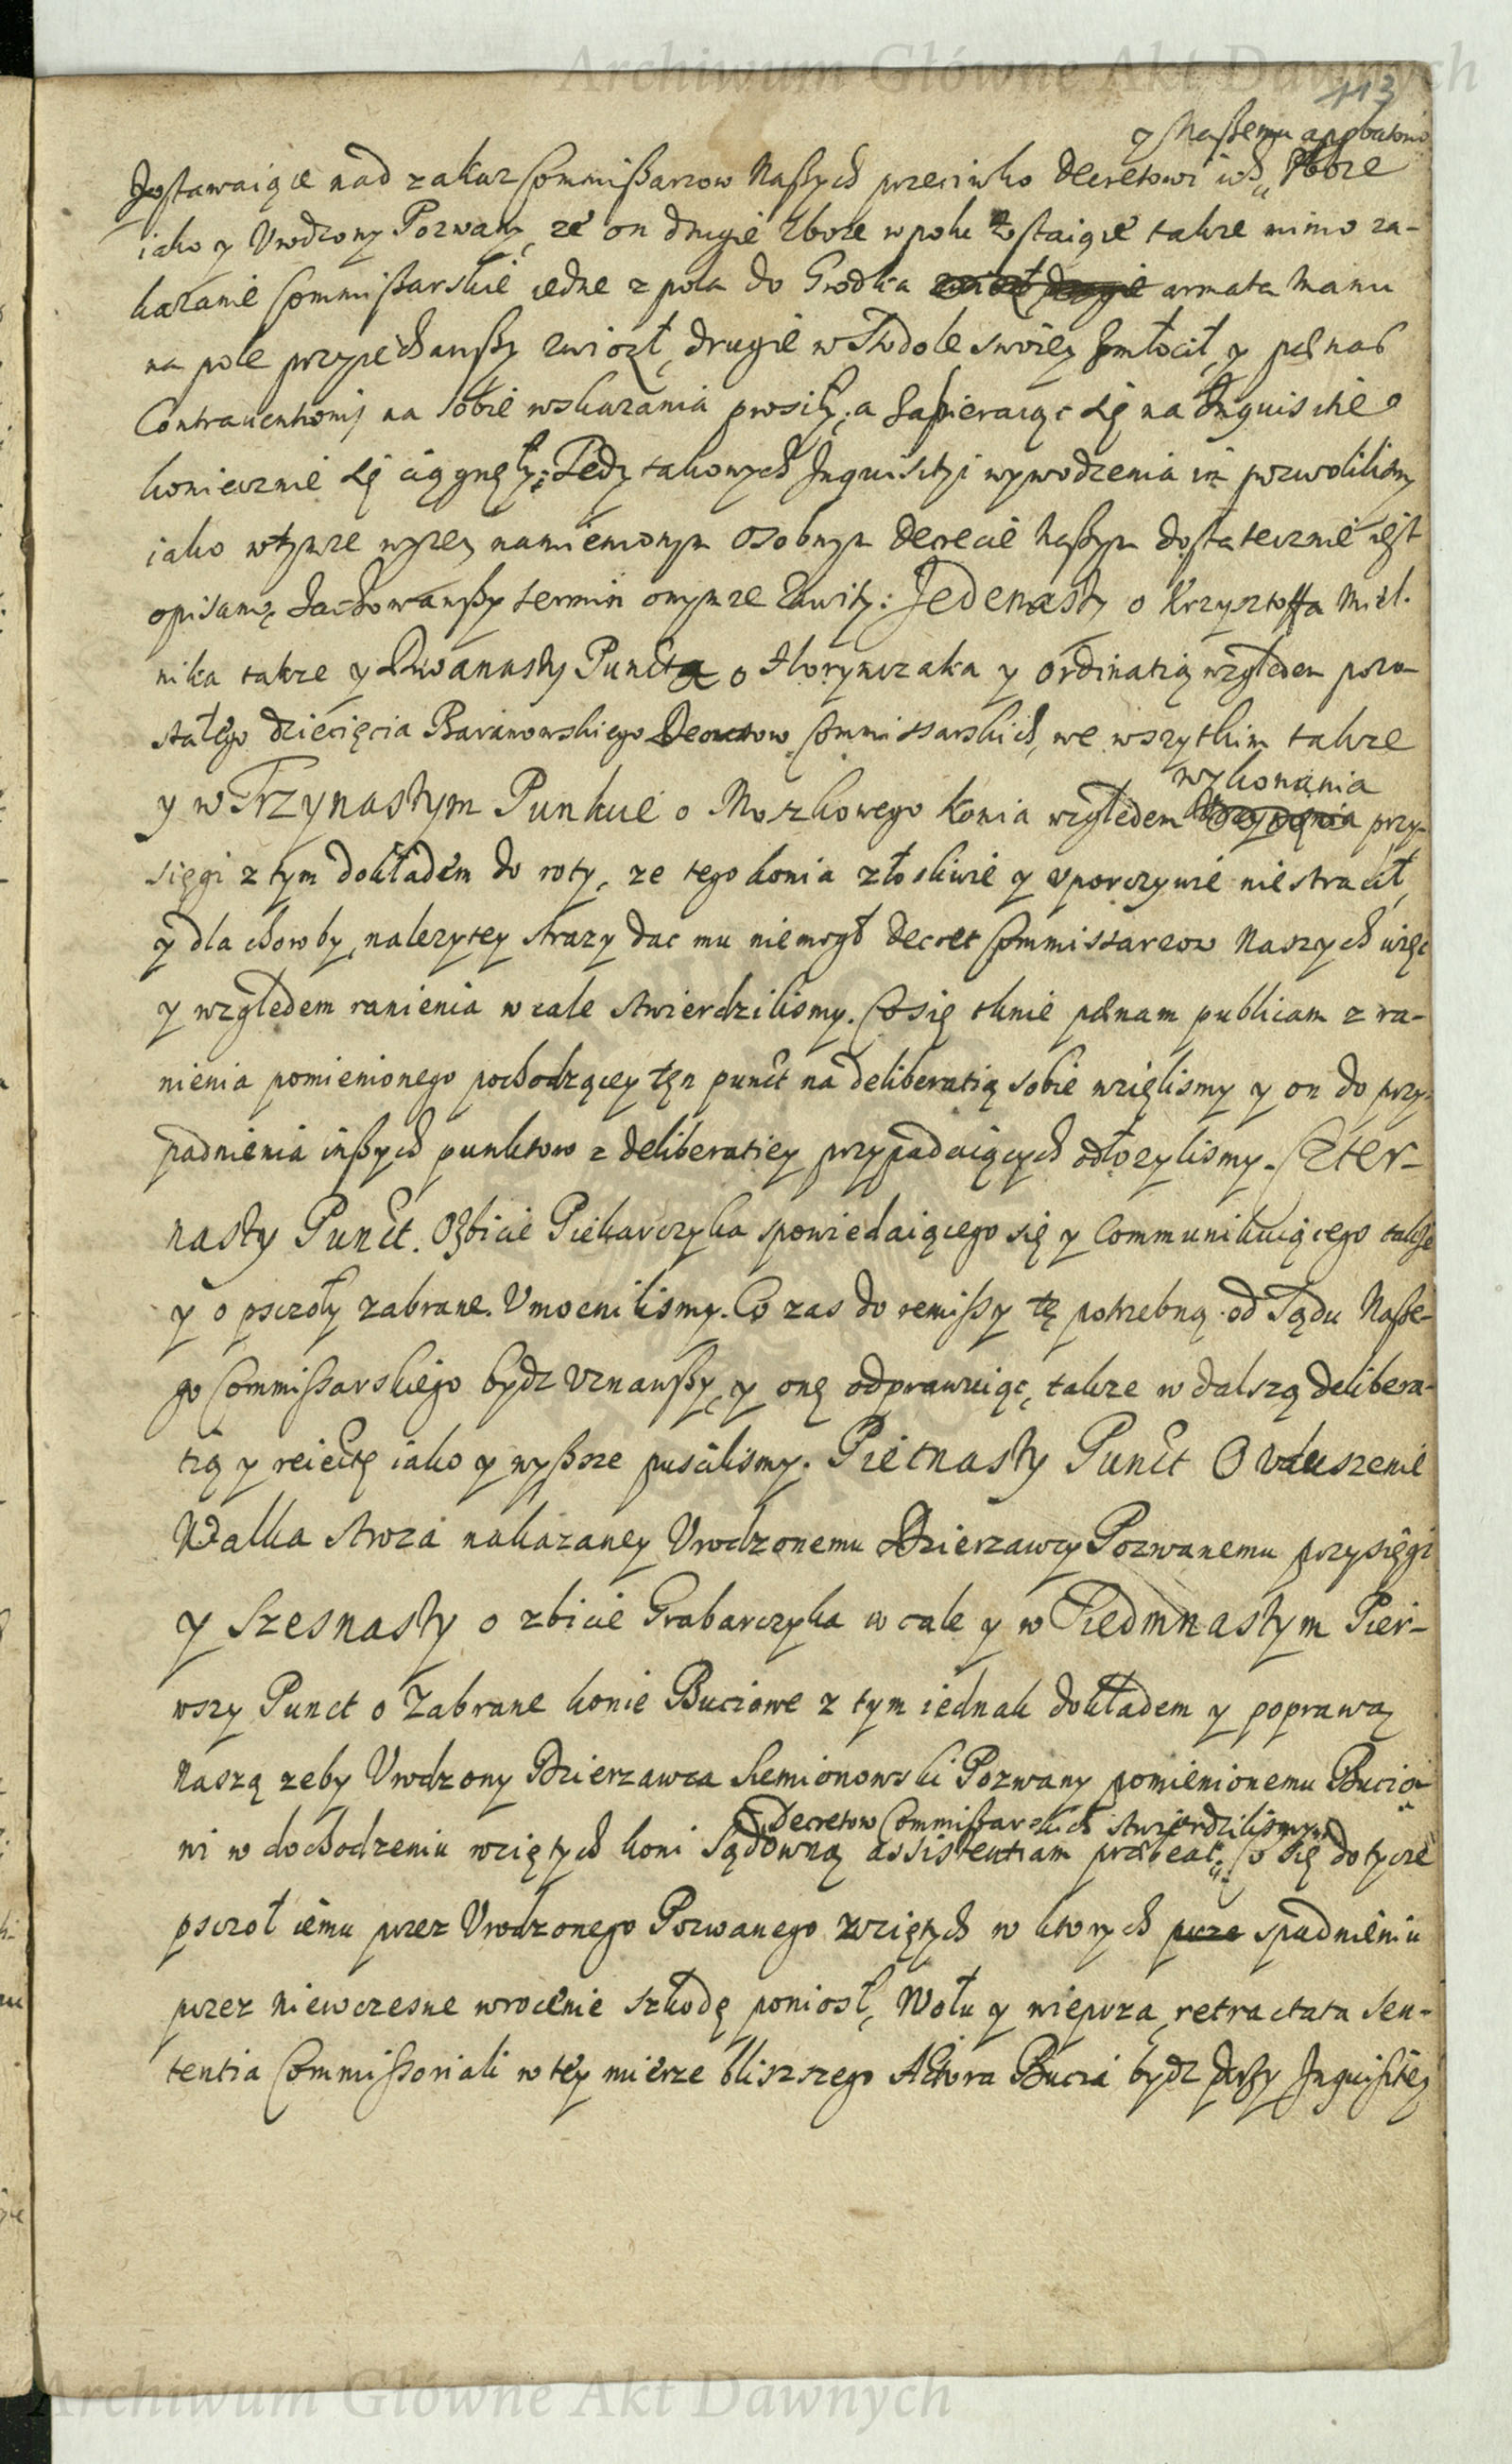 Archiwum Główne Akt Dawnych
113
y Naszemu approbatorio
zostawaiące nad zakaz Commissarzow Naszych przeciwko Decretowi ich zboze
iako y Vrodzony Pozwany, ze on drugie zboze w polu zostaiące takze mimo za-
kazanie Commissarskie iedne z pola do Grodka armata manu
na pole przyiechawszy zwiozł, drugie w Stodole swoiey zmłocił, y pænas
Contrauentionis na sobie wskazania prosiły; a zabieraiąc się na Inquisitie
koniecznie się ciągnęły; Tedy takowych Inquisityi wywodzenia im pozwolilismy
iako w tymze wyzey namienionym osobnym Decrecie Naszym dostatecznie iest
opisano, zachowawszy termin onymze zawity: Jedenasty o Krzysztoffa Miel-
nika takze y Dwanasty Punct o Horynczaka y ordinatią względem pozo-
stałego dziecięcia Baranowskiego Decretow Commissarskich, we wszytkim takze
y w Trzynastym Punkcie o Moszkowego konia względem wykonania przy-
sięgi z tym dokładem do roty, ze tego konia złosliwie y vporczywie nie stracił,
y dla choroby, nalezytey strazy dac mu niemogł Decret Commissarzow Naszych więc
y względem ranienia w cale stwierdzilismy. Co się tknie pænam publicam z ra-
nienia pomienionego pochodzącey ten punct na deliberatią sobie wzięlismy y on do przy-
padnienia inszych punktow z deliberatiey przypadaiących odłozylismy. Czter-
nasty Punct. O zbicie Piekarczyka spowiedaiącego się y Communikuiącego takze
y o psczoły zabrane. Vmocnilismy. Co zas do remissy tę potrzebną od Sądu Nasze-
go Commissarskiego bydz vznawszy, y onę odprawuiąc, takze w dalszą delibera-
tią y reiectę iako y wyssze puscilismy. Piętnasty Punct O vduszenie
Walka stroza nakazaney Vrodzonemu Dzierzawcy Pozwanemu przysięgi
y Szesnasty o zbicie Grabarczyka w cale y w Siedmnastym Pier-
wszy Punct o Zabrane konie Buciowe z tym iednak dokładem y poprawą
Naszą zeby Vrodzony Dzierzawca Siemionowski Pozwany pomienionemu Bucio-
Decretow Commissarskich stwierdzilismy
wi w dochodzeniu wziętych koni Sądowną assistentiam præbeat. Co się dotycze
psczoł iemu przez Vrodzonego Pozwanego wziętych w ktorych spadnieniu
przez niewczesne wrocenie szkodę poniosł, Wołu y wieprza, retractata Sen-
tentia Commissoriali w tey mierze bliszszego Aktora Bucia bydz Inquisitey
Archiwum Główne Akt Dawnych